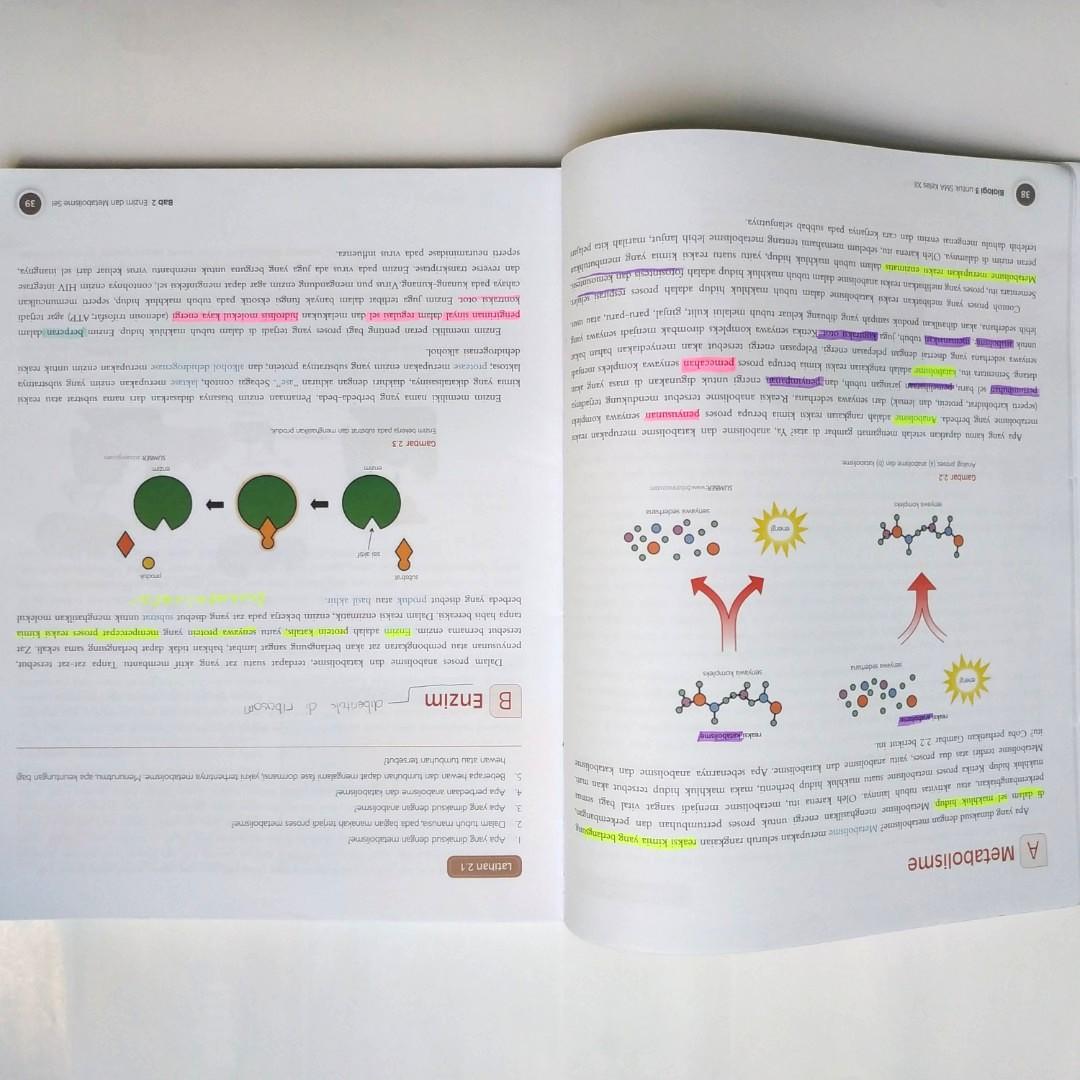 A Metabolisme
Apa yang dimaksud dengan metabolisme? Metabolisme merupakan seluruh rangkaian reaksi kimia yang berlangsung
di dalam sel makhluk hidup. Metabolisme menghasilkan energi untuk proses pertumbuhan dan perkembangan,
perkembangbiakan, atau aktivitas tubuh lainnya. Oleh karena itu, metabolisme menjadi sangat vital bagi semua
makhluk hidup. Ketika proses metabolisme suatu makhluk hidup berhenti, maka makhluk hidup tersebut akan mati.
Metabolisme terdiri atas dua proses, yaitu anabolisme dan katabolisme. Apa sebenarnya anabolisme dan katabolisme
itu? Coba perhatikan Gambar 2.2 berikut ini.
reaksi anabolisme
reaksi katabolisme
energi
senyawa sederhana
senyawa kompleks
senyawa kompleks
energi
senyawa sederhana
SUMBER: www.
Gambar 2.2
Analogi proses (a) anabolisme dan (b) katabolisme.
Apa yang kamu dapatkan setelah mengamati gambar di atas? Ya, anabolisme dan katabolisme merupakan reaksi
metabolisme yang berbeda. Anabolisme adalah rangkaian reaksi kimia berupa proses penyusunan senyawa kompleks
(seperti karbohidrat, protein, dan lemak) dari senyawa sederhana. Reaksi anabolisme memungkinkan terjadinya
pertumbuhan sel baru, jaringan tubuh, dan penyimpanan energi untuk digunakan di masa yang akan
datang. Sementara itu, katabolisme adalah rangkaian reaksi kimia berupa proses pemecahan senyawa kompleks menjadi
senyawa sederhana yang disertai dengan pelepasan energi. Pelepasan energi tersebut akan menyediakan bahan bakar
untuk anabolisme, memanaskan tubuh, juga kontraksi otot. Ketika senyawa kompleks dirombak menjadi senyawa yang
lebih sederhana, akan dihasilkan produk sampah yang dibuang keluar tubuh melalui kulit, ginjal, paru-paru, atau usus.
Contoh proses yang melibatkan reaksi katabolisme dalam tubuh makhluk hidup adalah proses respirasi selular.
Sementara itu, proses yang melibatkan reaksi anabolisme dalam tubuh makhluk hidup adalah fotosintesis dan kemosintesis.
Metabolisme merupakan reaksi enzimatis dalam tubuh makhluk hidup, yaitu suatu reaksi kimia yang membutuhkan
peran enzim di dalamnya. Oleh karena itu, sebelum memahami tentang metabolisme lebih lanjut, marilah kita pelajari
terlebih dahulu mengenai enzim dan cara kerjanya pada subbab selanjutnya.
38 Biologi 3 untuk SMA Kelas XII
Latihan 2.1
1. Apa yang dimaksud dengan metabolisme?
2. Dalam tubuh manusia, pada bagian manakah terjadi proses metabolisme?
3. Apa yang dimaksud dengan anabolisme?
4. Apa perbedaan anabolisme dan katabolisme?
5. Beberapa hewan dan tumbuhan dapat mengalami fase dormansi, yakni terhentinya metabolisme. Menurutmu, apa keuntungan bagi
hewan atau tumbuhan tersebut?
B Enzim dibentuk di ribosom
Dalam proses anabolisme dan katabolisme, terdapat suatu zat yang aktif membantu. Tanpa zat-zat tersebut,
penyusunan atau pembongkaran zat akan berlangsung sangat lambat, bahkan tidak dapat berlangsung sama sekali. Zat
tersebut bernama enzim. Enzim adalah protein katalis, yaitu senyawa protein yang mempercepat proses reaksi kimia
tanpa habis bereaksi. Dalam reaksi enzimatik, enzim bekerja pada zat yang disebut substrat untuk menghasilkan molekul
berbeda yang disebut produk atau hasil akhir.
substrat
sisi aktif
enzim
produk
enzim
SUMBER:
Gambar 2.3
Enzim bekerja pada substrat dan menghasilkan produk.
Enzim memiliki nama yang berbeda-beda. Penamaan enzim biasanya didasarkan dari nama substrat atau reaksi
kimia yang dikatalisisnya, diakhiri dengan akhiran "ase". Sebagai contoh, laktase merupakan enzim yang substratnya
laktosa, protease merupakan enzim yang substratnya protein, dan alkohol dehidrogenase merupakan enzim untuk reaksi
dehidrogenasi alkohol.
Enzim memiliki peran penting bagi proses yang terjadi di dalam tubuh makhluk hidup. Enzim berperan dalam
pengiriman sinyal dalam regulasi sel dan melakukan hidrolisis molekul kaya energi (adenosin trifosfat; ATP) agar terjadi
kontraksi otot. Enzim juga terlibat dalam banyak fungsi eksotik pada tubuh makhluk hidup, seperti memunculkan
cahaya pada kunang-kunang. Virus pun mengandung enzim agar dapat menginfeksi sel, contohnya enzim HIV integrase
dan reverse transkriptase. Enzim pada virus ada juga yang berguna untuk membantu virus keluar dari sel inangnya,
seperti neuraminidase pada virus influenza.
Bab 2 Enzim dan Metabolisme Sel 39